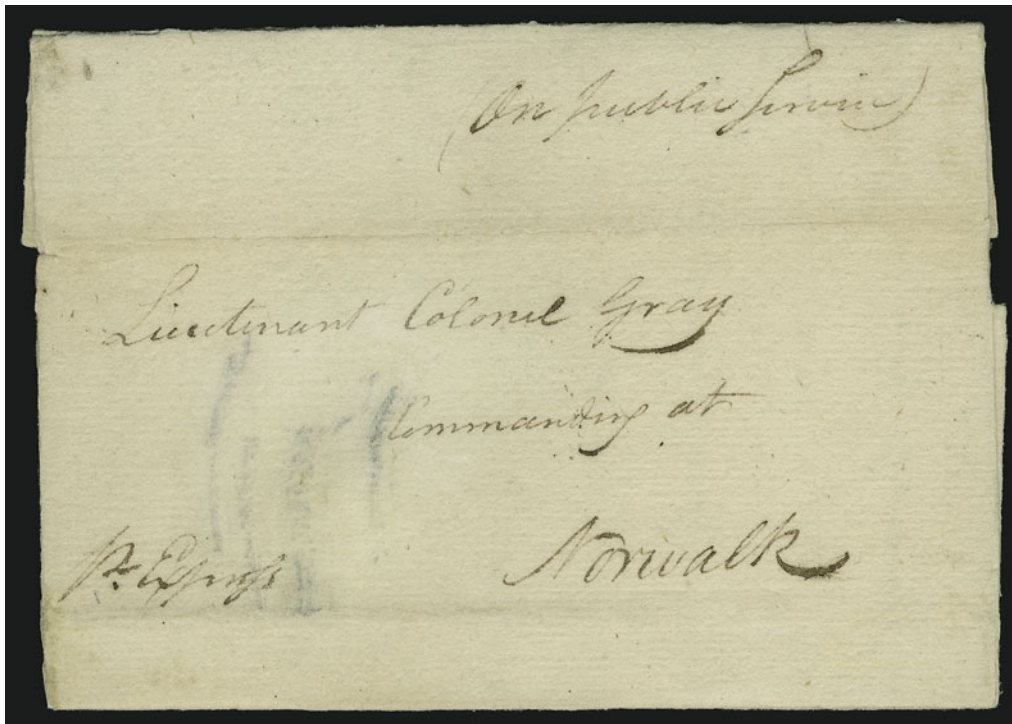 (On public Service)
Lieutenant Colonel Gray
Commanding at
Norwalk
Pr. Express